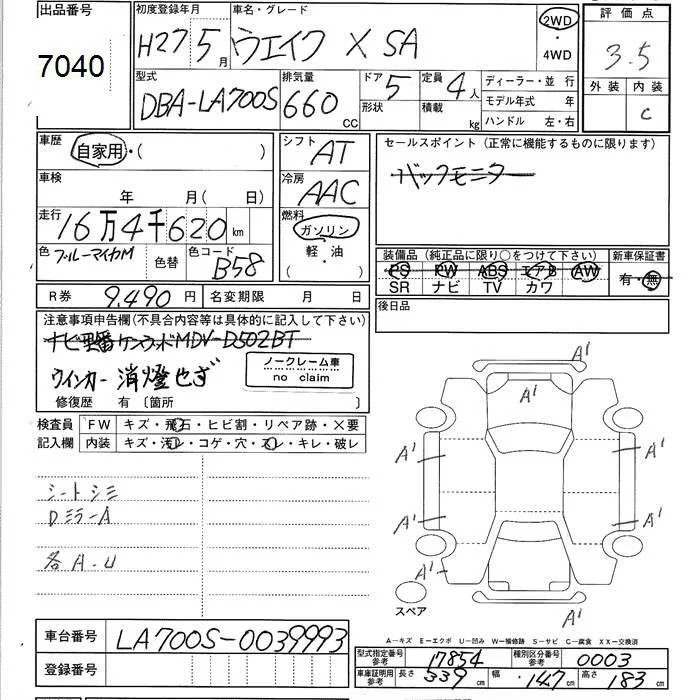 出品番号
7040
初度登録年月
H27 5月
車名・グレード
ウエイク X SA
2WD
・
4WD
評価点
3.5
外装 内装
C
型式
DBA-LA700S
排気量
660 CC
ドア 5
形状
定員 4人
積載 kg
ディーラー・並行
モデル年式 年
ハンドル 左・右
車歴
自家用・( )
車検
年 月( 日)
走行
16万4千620km
色
ブルーマイカM
色替
色コード
B58
シフト
AT
冷房
AAC
燃料
ガソリン
軽・油
( )
セールスポイント (正常に機能するものに限ります)
バックモニター
装備品 (純正品に限り○をつけて下さい)
PS PW ABS エアB AW
SR ナビ TV カワ
新車保証書
有・無
R券 9,490円
名変期限 月 日
後日品
注意事項申告欄(不具合内容等は具体的に記入して下さい)
ナビ型番 ケンウッド MDV-D502BT
ウインカー 消燈せず
ノークレーム車
no claim
修復歴 有 〔箇所 〕
検査員
記入欄
FW キズ・飛石・ヒビ割・リペア跡・×要
内装 キズ・汚レ・コゲ・穴・スレ・キレ・破レ
シートシミ
DミラーA
各A.U
A'
A'
A' A'
A' A'
A'
A'
スペア
A―キズ E―エクボ U―凹み W―補修跡 S―サビ C―腐食 XX―交換済
車台番号 LA700S-0039993
登録番号
型式指定番号
参考
17854
種別区分番号
参考
0003
車庫証明用
参考
長さ 339cm
幅 147cm
高さ 183cm